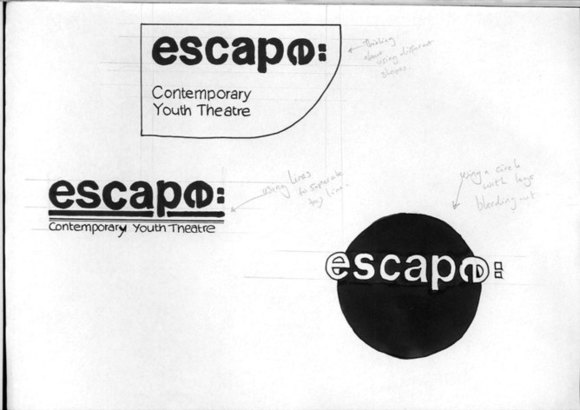 escape:
Contemporary
Youth Theatre
Thinking
about
using different
shapes.
escape:
Contemporary Youth Theatre
using lines
to separate
tag line
using a circle
with logo
bleeding out
escape: